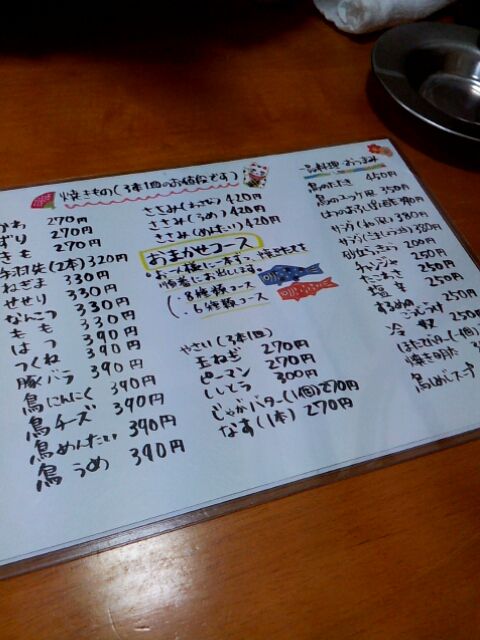 焼きもの(3本1皿のお値段です)
かわ 270円
ずり 270円
きも 270円
手羽先(2本)320円
ねぎま 330円
せせり 330円
なんこつ 330円
もも 330円
はつ 390円
つくね 390円
豚バラ 390円
鳥にんにく 390円
鳥チーズ 390円
鳥めんたい 390円
鳥うめ 390円
ささみ(わさび) 420円
ささみ(うめ) 420円
ささみ(めんたい) 420円
おまかせコース
お一人様一本ずつ、焼物を
順番にお出しします
・8種類コース
・6種類コース
やさい(3本1皿)
玉ねぎ 270円
ピーマン 270円
ししとう 300円
じゃがバター(1個)270円
なす(1本) 270円
一品料理・おつまみ
鳥のたたき 450円
鳥のユッケ風 350円
サラダ
200円
チャンジャ 250円
たこわさ 250円
塩辛 250円
冷奴 250円
焼き明太
鳥しめじスープ